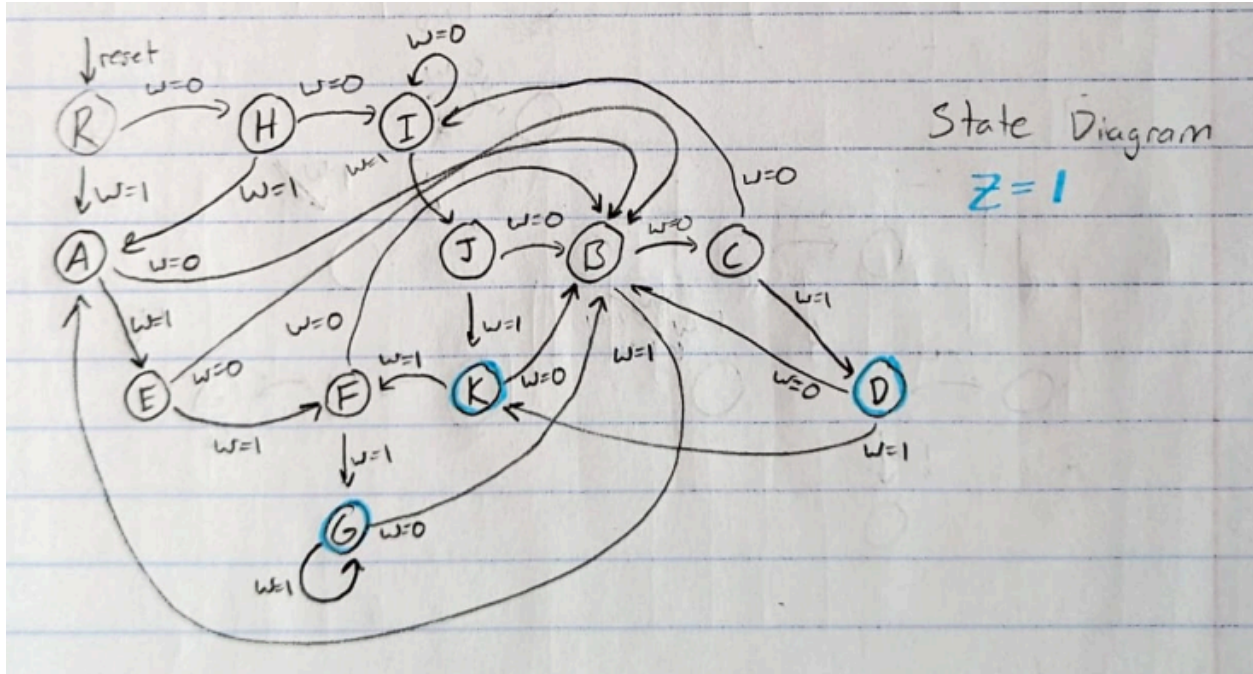 w=0
reset
w=0
w=0
R
H
I
State Diagram
Z=1
w=1
w=1
w=1
w=0
A
w=0
J
w=0
B
w=0
C
w=1
w=0
w=1
w=1
w=1
w=0
E
F
K
w=0
w=1
w=0
D
w=1
w=1
w=1
G
w=0
w=1